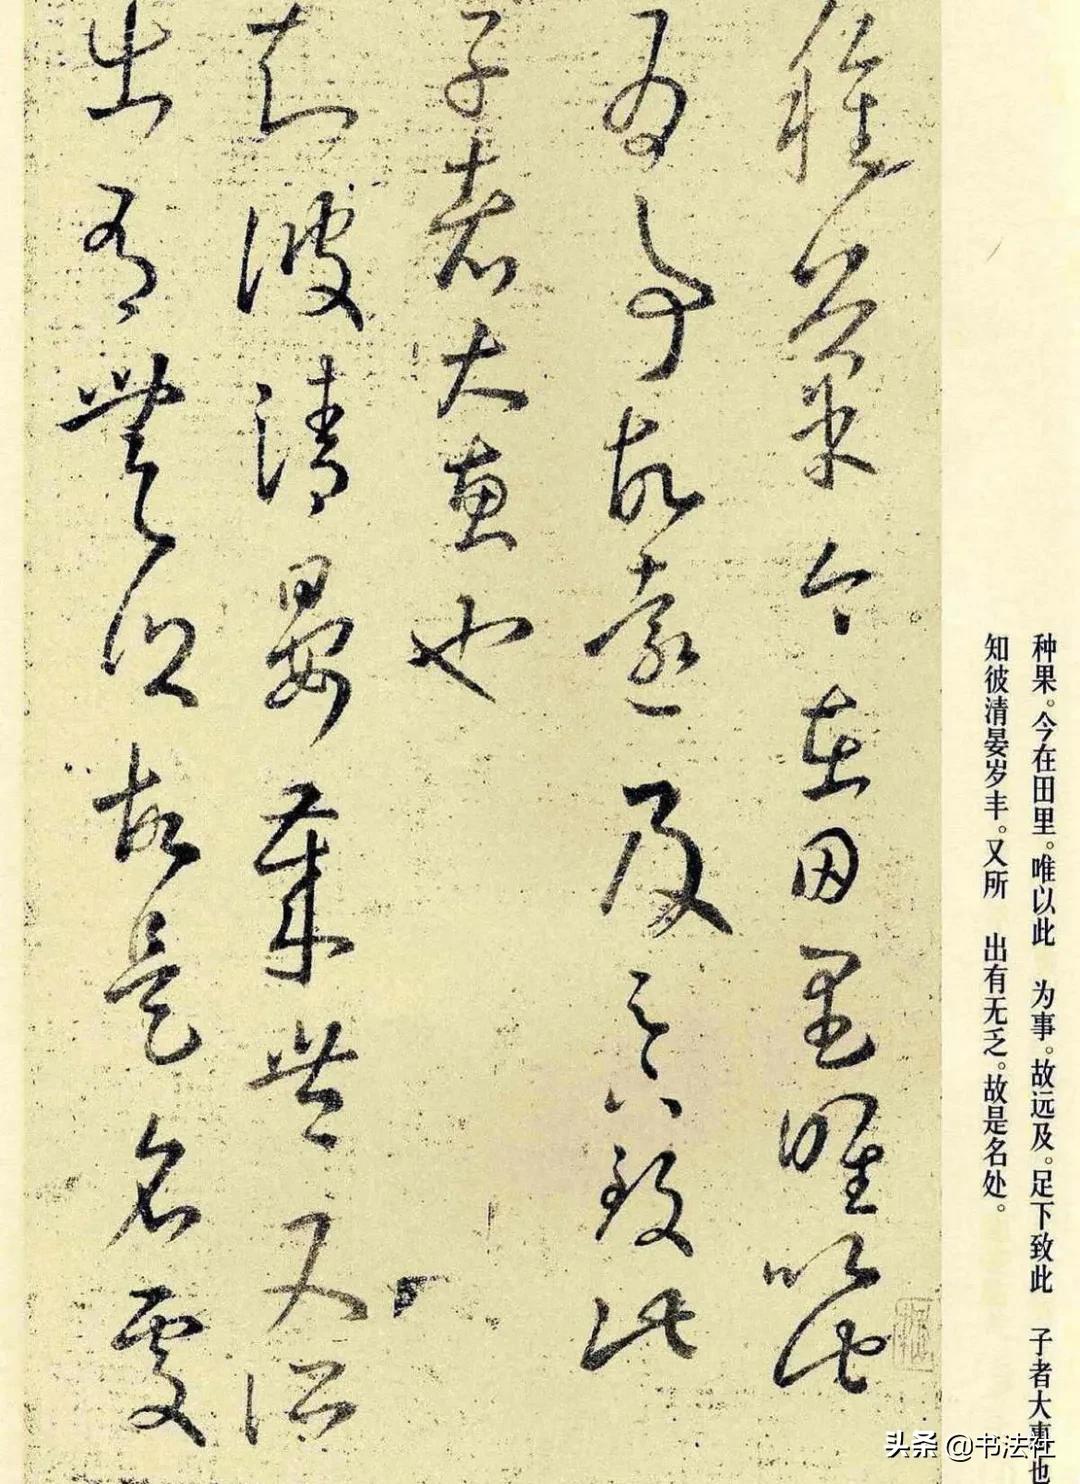 種菓今在田里唯以此
為事故遠及足下致此
子者大惠也
知彼清晏歲豐又所
出有無乏故是名處
种果。今在田里。唯以此　为事。故远及。足下致此　子者大惠也
知彼清晏岁丰。又所　出有无乏。故是名处。
头条 @书法社